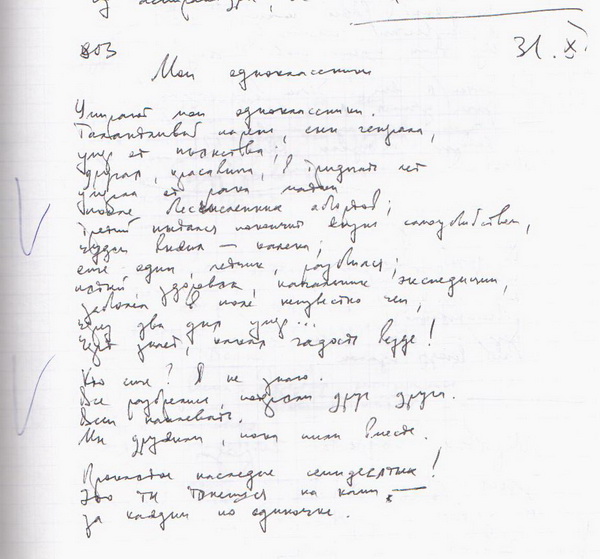 31.X
803
Мои одноклассники
Умирают мои одноклассники.
Талантливый парень, сын генерала,
умер от пьянства;
другая, красавица, в тридцать лет
умерла от рака матки
после бесчисленных абортов;
третий пытался покончить самоубийством,
чудом выжил — калека;
еще один, летчик, разбился;
пятый здоровяк, начальник экспедиции,
заболел в поле неизвестно чем,
через два дня умер...
Черт знает, какая гадость везде!
Кто еще? Я не знаю.
Все разбрелись, потеряли друг друга.
Всем наплевать.
Мы дружили, пока жили вместе.
Проклятое наследие семидесятых!
Это ты тянешься за нами,
за каждым по одиночке.